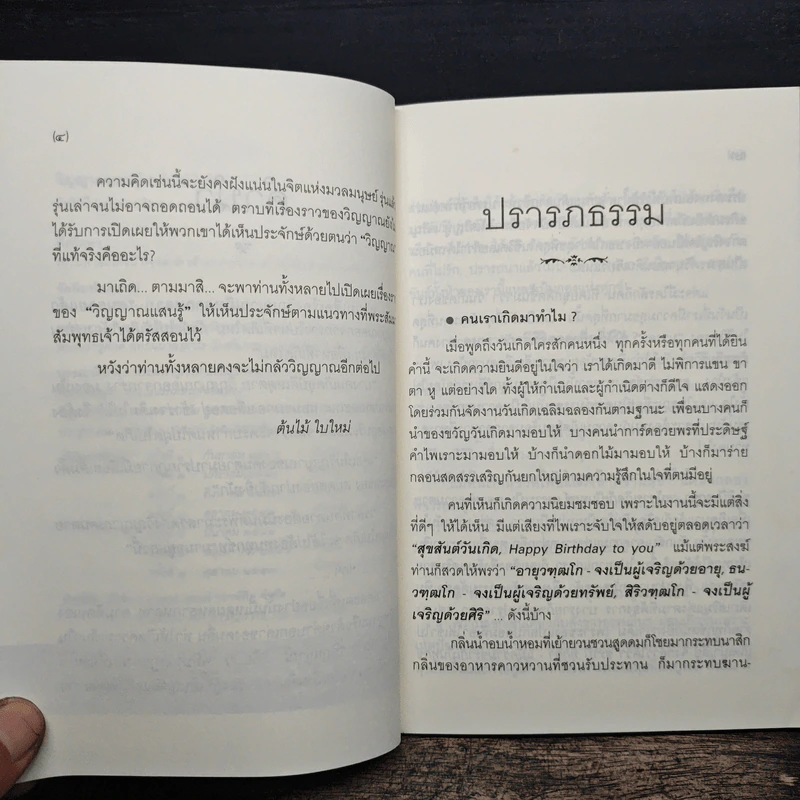 (๔)
ความคิดเช่นนี้จะยังคงฝังแน่นในจิตแห่งมวลมนุษย์ รุ่นแล้ว
รุ่นเล่าจนไม่อาจถอดถอนได้ ตราบที่เรื่องราวของวิญญาณยังไม่
ได้รับการเปิดเผยให้พวกเขาได้เห็นประจักษ์ด้วยตนว่า “วิญญาณ
ที่แท้จริงคืออะไร?
มาเถิด... ตามมาสิ... จะพาท่านทั้งหลายไปเปิดเผยเรื่อง
ของ “วิญญาณแสนรู้” ให้เห็นประจักษ์ตามแนวทางที่พระสัมมา
สัมพุทธเจ้าได้ตรัสสอนไว้
หวังว่าท่านทั้งหลายคงจะไม่กลัววิญญาณอีกต่อไป
ต้นไม้ ใบใหม่
ปรารภธรรม
● คนเราเกิดมาทำไม ?
เมื่อพูดถึงวันเกิดใครสักคนหนึ่ง ทุกครั้งหรือทุกคนที่ได้ยิน
คำนี้ จะเกิดความยินดีอยู่ในใจว่า เราได้เกิดมาดี ไม่พิการแขน ขา
ตา หู แต่อย่างใด ทั้งผู้ให้กำเนิดและผู้กำเนิดต่างก็ดีใจ แสดงออก
โดยร่วมกันจัดงานวันเกิดเฉลิมฉลองกันตามฐานะ เพื่อนบางคนก็
นำของขวัญวันเกิดมามอบให้ บางคนนำการ์ดอวยพรที่ประดิษฐ์
คำไพเราะมามอบให้ บ้างก็นำดอกไม้มามอบให้ บ้างก็มาร่าย
กลอนสดสรรเสริญกันยกใหญ่ตามความรู้สึกในใจที่ตนมีอยู่
คนที่เห็นก็เกิดความนิยมชมชอบ เพราะในงานนี้จะมีแต่สิ่ง
ที่ดีๆ ให้ได้เห็น มีแต่เสียงที่ไพเราะจับใจให้สดับอยู่ตลอดเวลาว่า
“สุขสันต์วันเกิด, Happy Birthday to you” แม้แต่พระสงฆ์
ท่านก็สวดให้พรว่า “อายุวฑฺฒโก - จงเป็นผู้เจริญด้วยอายุ, ธน-
วฑฺฒโก - จงเป็นผู้เจริญด้วยทรัพย์, สิริวฑฺฒโก - จงเป็นผู้
เจริญด้วยศิริ” ... ดังนี้บ้าง
กลิ่นน้ำอบน้ำหอมที่เย้ายวนชวนสูดดมก็โชยมากระทบนาสิก
กลิ่นของอาหารคาวหวานที่ชวนรับประทาน ก็มากระทบฆาน-